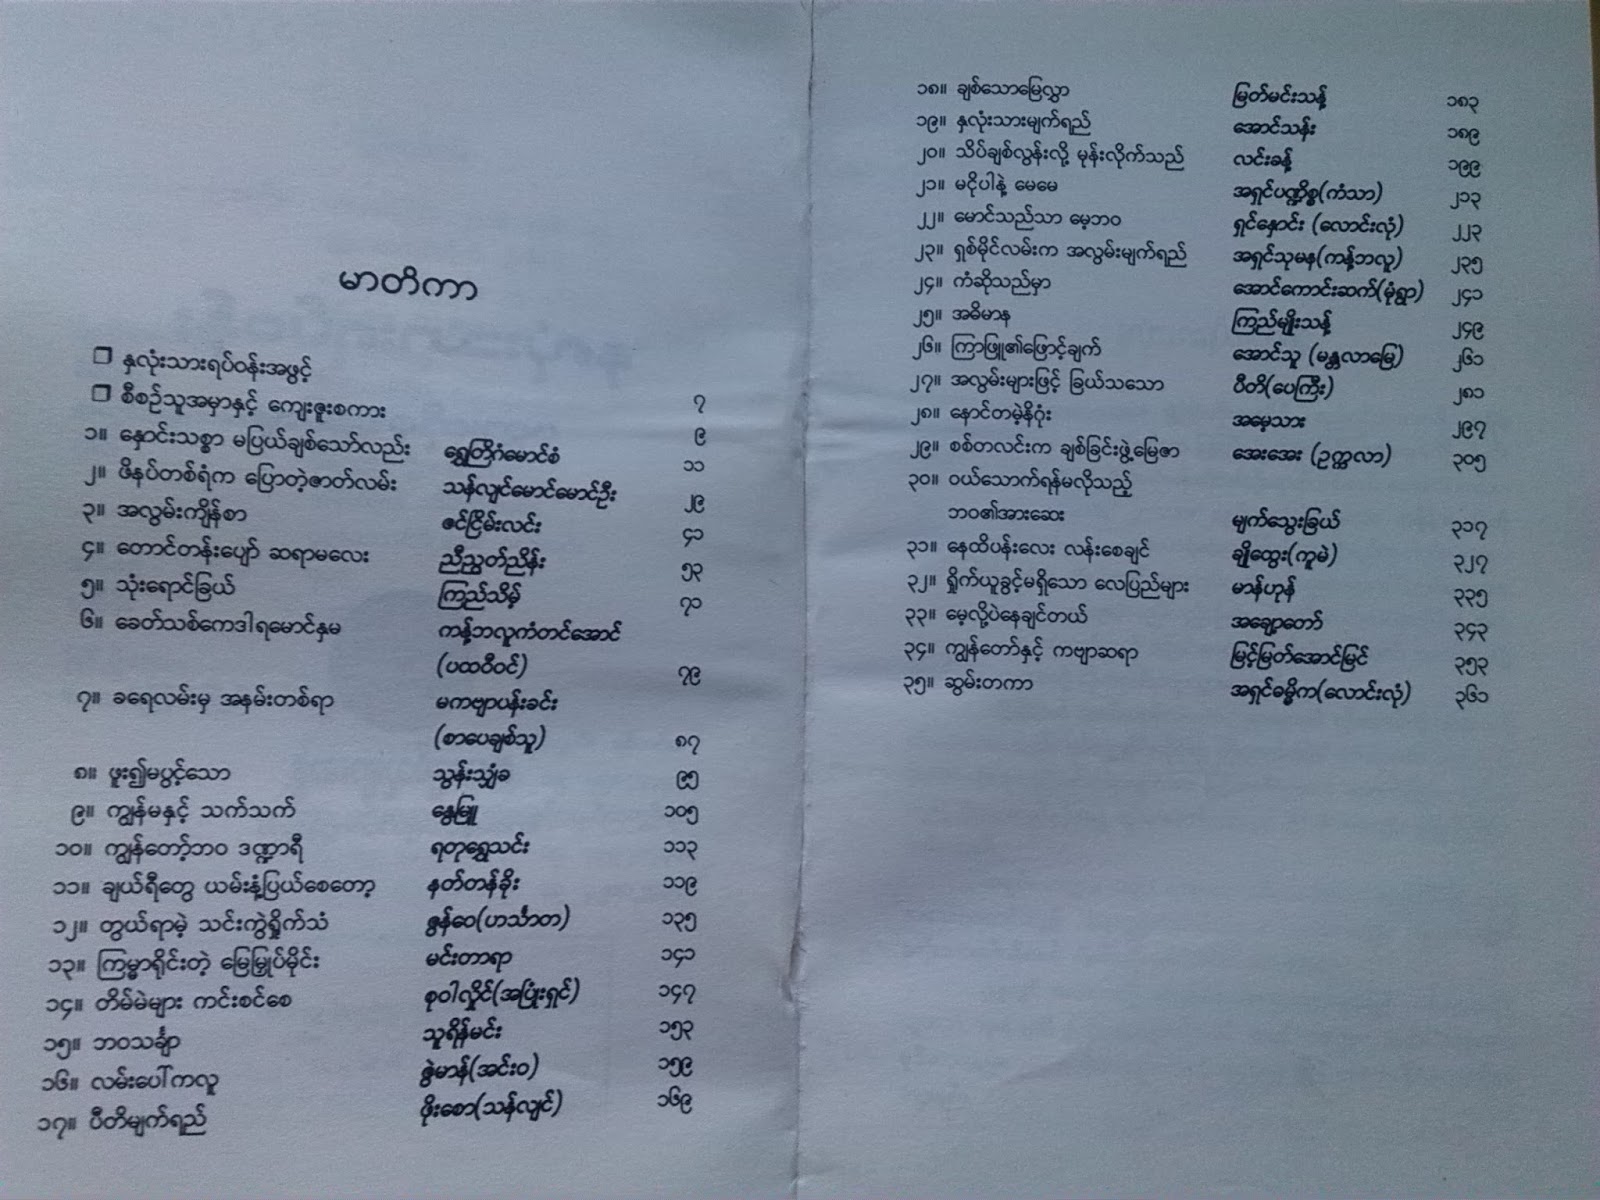 မာတိကာ
❐ နှလုံးသားရပ်ဝန်းအဖွင့် ၇
❐ စီစဉ်သူအမှာနှင့် ကျေးဇူးစကား ၉
၁။ နှောင်းသစ္စာ မပြယ်ချစ်သော်လည်း ရွှေတြိဂံမောင်စံ ၁၁
၂။ ဖိနပ်တစ်ရံက ပြောတဲ့ဇာတ်လမ်း သန်လျင်မောင်မောင်ဦး ၂၉
၃။ အလွမ်းကျိန်စာ ဇင်ငြိမ်းလင်း ၄၁
၄။ တောင်တန်းပျော် ဆရာမလေး ညီညွတ်ညိန်း ၅၃
၅။ သုံးရောင်ခြယ် ကြည်သိမ့် ၇၁
၆။ ခေတ်သစ်ကေဒါရမောင်နှမ ကန့်ဘလူကံတင်အောင်
(ပထဝီဝင်) ၇၉
၇။ ခရေလမ်းမှ အနမ်းတစ်ရာ မကဗျာပန်းခင်း
(စာပေချစ်သူ) ၈၇
၈။ ဖူး၍မပွင့်သော သွန်းသျှံခ ၉၅
၉။ ကျွန်မနှင့် သက်သက် နွေမြူ ၁၀၅
၁၀။ ကျွန်တော့်ဘဝ ဒဏ္ဍာရီ ရတုရွှေသင်း ၁၁၃
၁၁။ ချယ်ရီတွေ ယမ်းနံ့ပြယ်စေတော့ နတ်တန်ခိုး ၁၁၉
၁၂။ တွယ်ရာမဲ့ သင်းကွဲရှိုက်သံ ဇွန်ဝေ(ဟင်္သာတ) ၁၃၅
၁၃။ ကြမ္မာရိုင်းတဲ့ မြေမြှုပ်မိုင်း မင်းတာရာ ၁၄၁
၁၄။ တိမ်မဲများ ကင်းစင်စေ စုဝါလှိုင်(အပြုံးရှင်) ၁၄၇
၁၅။ ဘဝသင်္ချာ သူရိန်မင်း ၁၅၃
၁၆။ လမ်းပေါ်ကလူ ဇွဲမာန်(အင်းဝ) ၁၅၉
၁၇။ ပီတိမျက်ရည် ဖိုးစော(သန်လျင်) ၁၆၉
၁၈။ ချစ်သောမြေလွှာ မြတ်မင်းသန့် ၁၈၃
၁၉။ နှလုံးသားမျက်ရည် အောင်သန်း ၁၈၉
၂၀။ သိပ်ချစ်လွန်းလို့ မုန်းလိုက်သည် လင်းခန့် ၁၉၉
၂၁။ မငိုပါနဲ့ မေမေ အရှင်ပဏ္ဍိစ္စ(ကံသာ) ၂၁၃
၂၂။ မောင်သည်သာ မေ့ဘဝ ရှင်နှောင်း (လောင်းလုံ) ၂၂၃
၂၃။ ရှစ်မိုင်လမ်းက အလွမ်းမျက်ရည် အရှင်သုမန(ကန့်ဘလူ) ၂၃၅
၂၄။ ကံဆိုသည်မှာ အောင်ကောင်းဆက်(မုံရွာ) ၂၄၁
၂၅။ အဓိမာန ကြည်မျိုးသန့် ၂၄၉
၂၆။ ကြာဖြူ၏ဖြောင့်ချက် အောင်သူ (မန္တလာမြေ) ၂၆၁
၂၇။ အလွမ်းများဖြင့် ခြယ်သသော ပီတိ(ပေကြီး) ၂၈၁
၂၈။ နောင်တမဲ့နိဂုံး အမေ့သား ၂၉၇
၂၉။ စစ်တလင်းက ချစ်ခြင်းဖွဲ့မြေဇာ အေးအေး (ဥက္ကလာ) ၃၀၅
၃၀။ ဝယ်သောက်ရန်မလိုသည့်
ဘဝ၏အားဆေး မျက်သွေးခြယ် ၃၁၇
၃၁။ နေထိပန်းလေး လန်းစေချင် ချိုထွေး(ကူမဲ) ၃၂၇
၃၂။ ရှိုက်ယူခွင့်မရှိသော လေပြည်များ မာန်ဟုန် ၃၃၅
၃၃။ မေ့လို့ပဲနေချင်တယ် အချော့တော် ၃၄၃
၃၄။ ကျွန်တော်နှင့် ကဗျာဆရာ မြင့်မြတ်အောင်မြင် ၃၅၃
၃၅။ ဆွမ်းတကာ အရှင်ဓမ္မိက(လောင်းလုံ) ၃၆၁